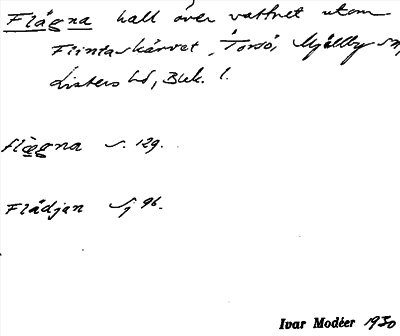 Flågna hall över vattnet utom
Flintaskärvet, Torsö, Mjällby sn,
Listers hd, Blek. l.
flægna s. 129.
Flådjan Sj 96.
Ivar Modéer 1930